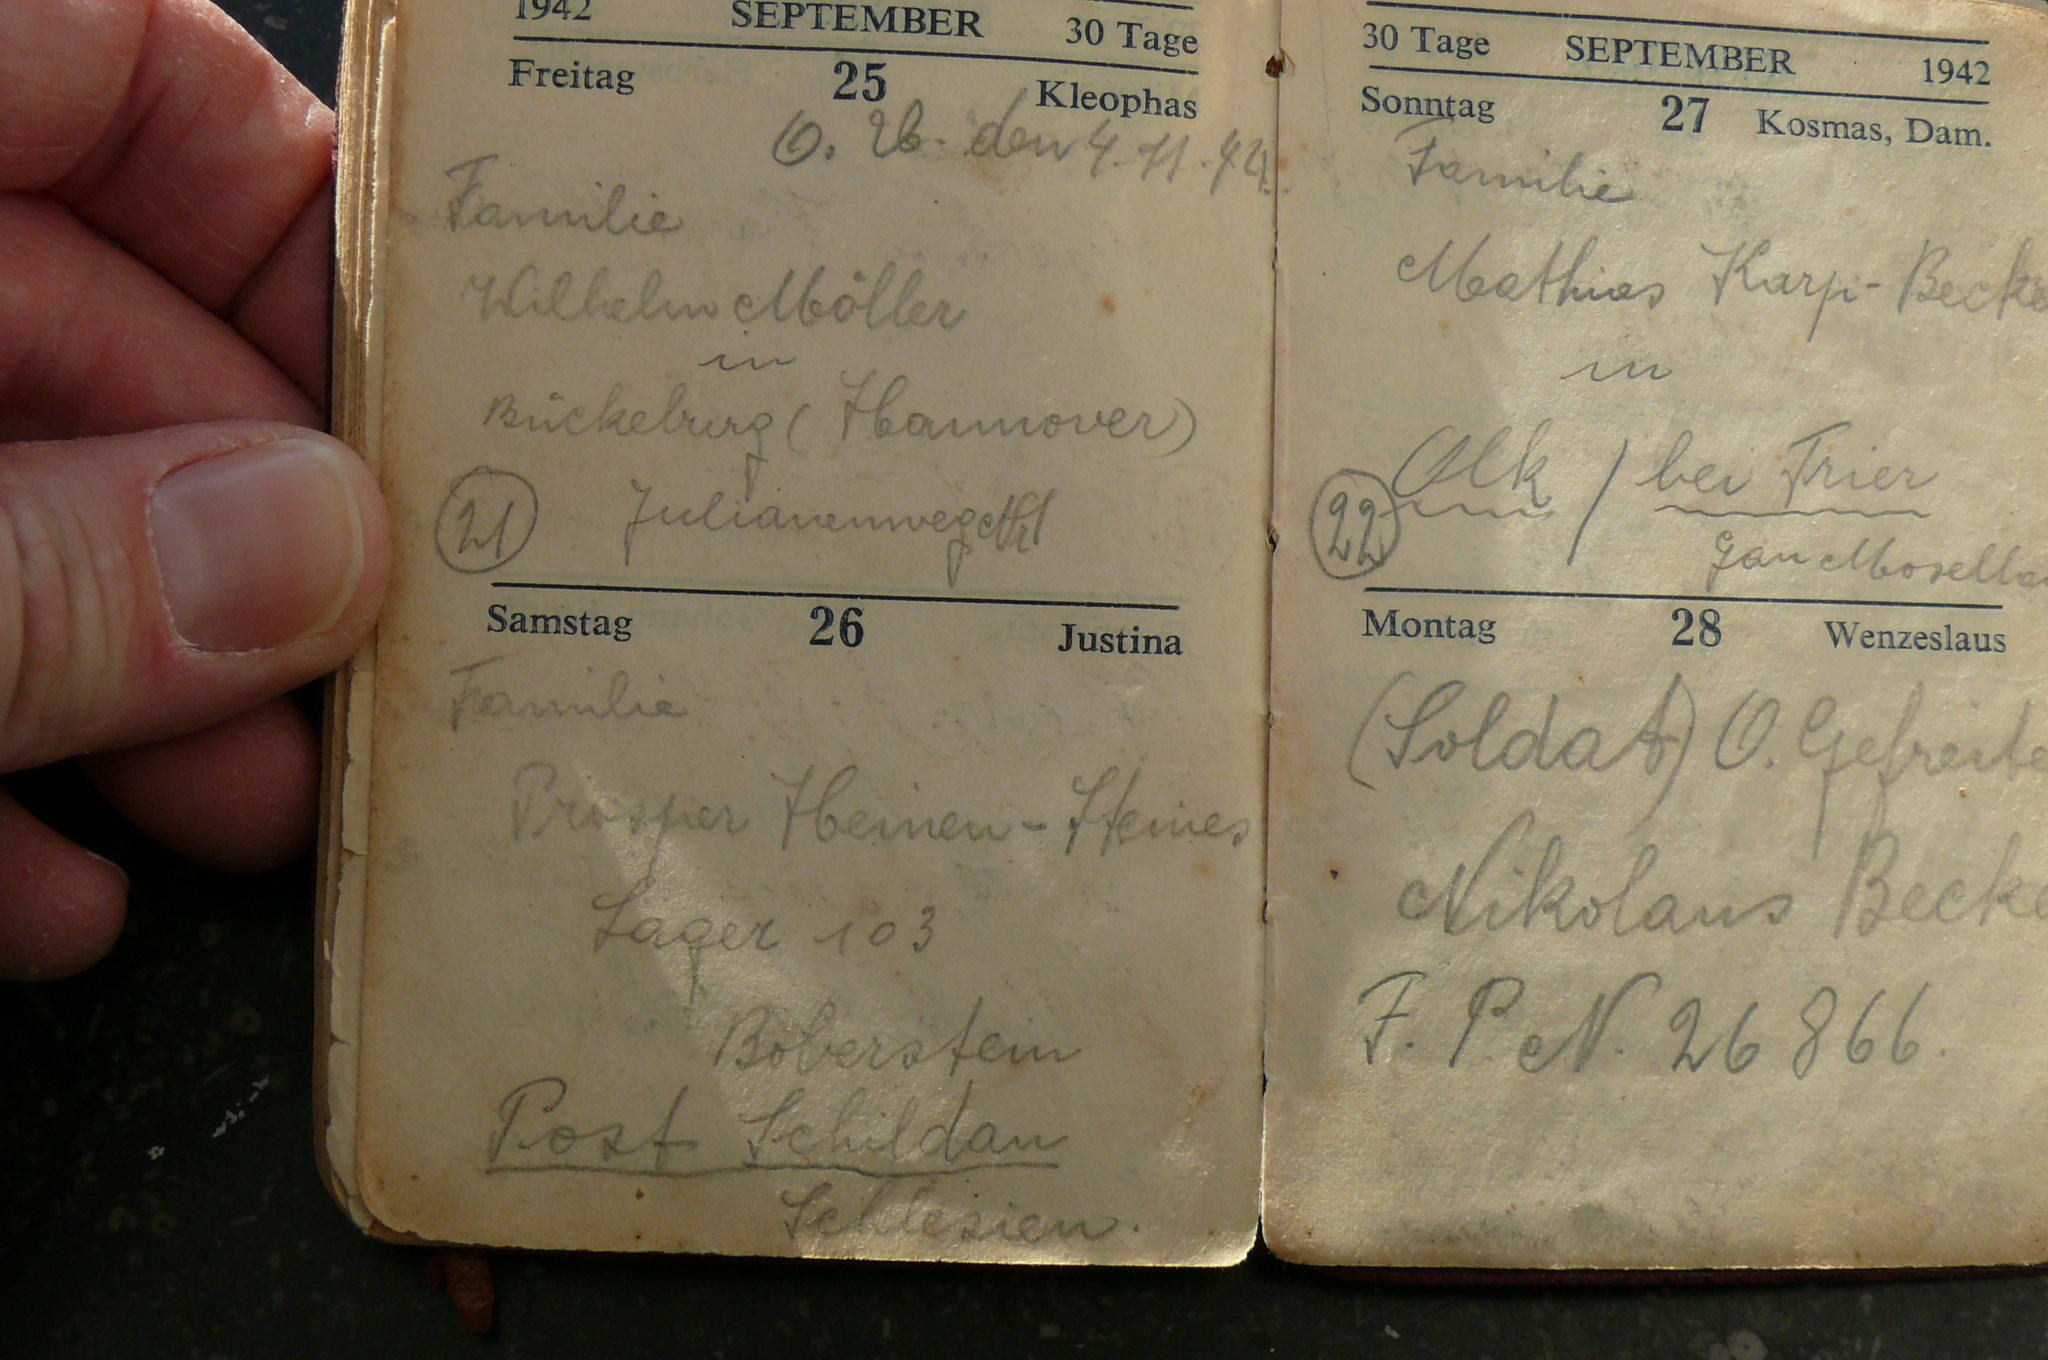 1942 SEPTEMBER 30 Tage
Freitag 25 Kleophas
O. W. den 4.11.42.
Familie
Wilhelm Möller
in
Bückeburg (Hannover)
21 Julianenweg
Samstag 26 Justina
Familie
Prosper Heinen-Steines
Lager 103
Boberstein
Post Schildau
Schlesien.
30 Tage SEPTEMBER 1942
Sonntag 27 Kosmas, Dam.
Familie
Mathias Karp-Becke
in
Olk / bei Trier
22 Gau Mosella
Montag 28 Wenzeslaus
(Soldat) O. Gefreite
Nikolaus Becke
F. P. N. 26 866.